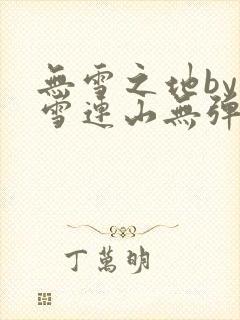 無雪之地by
雪連山無彈
丁萬明